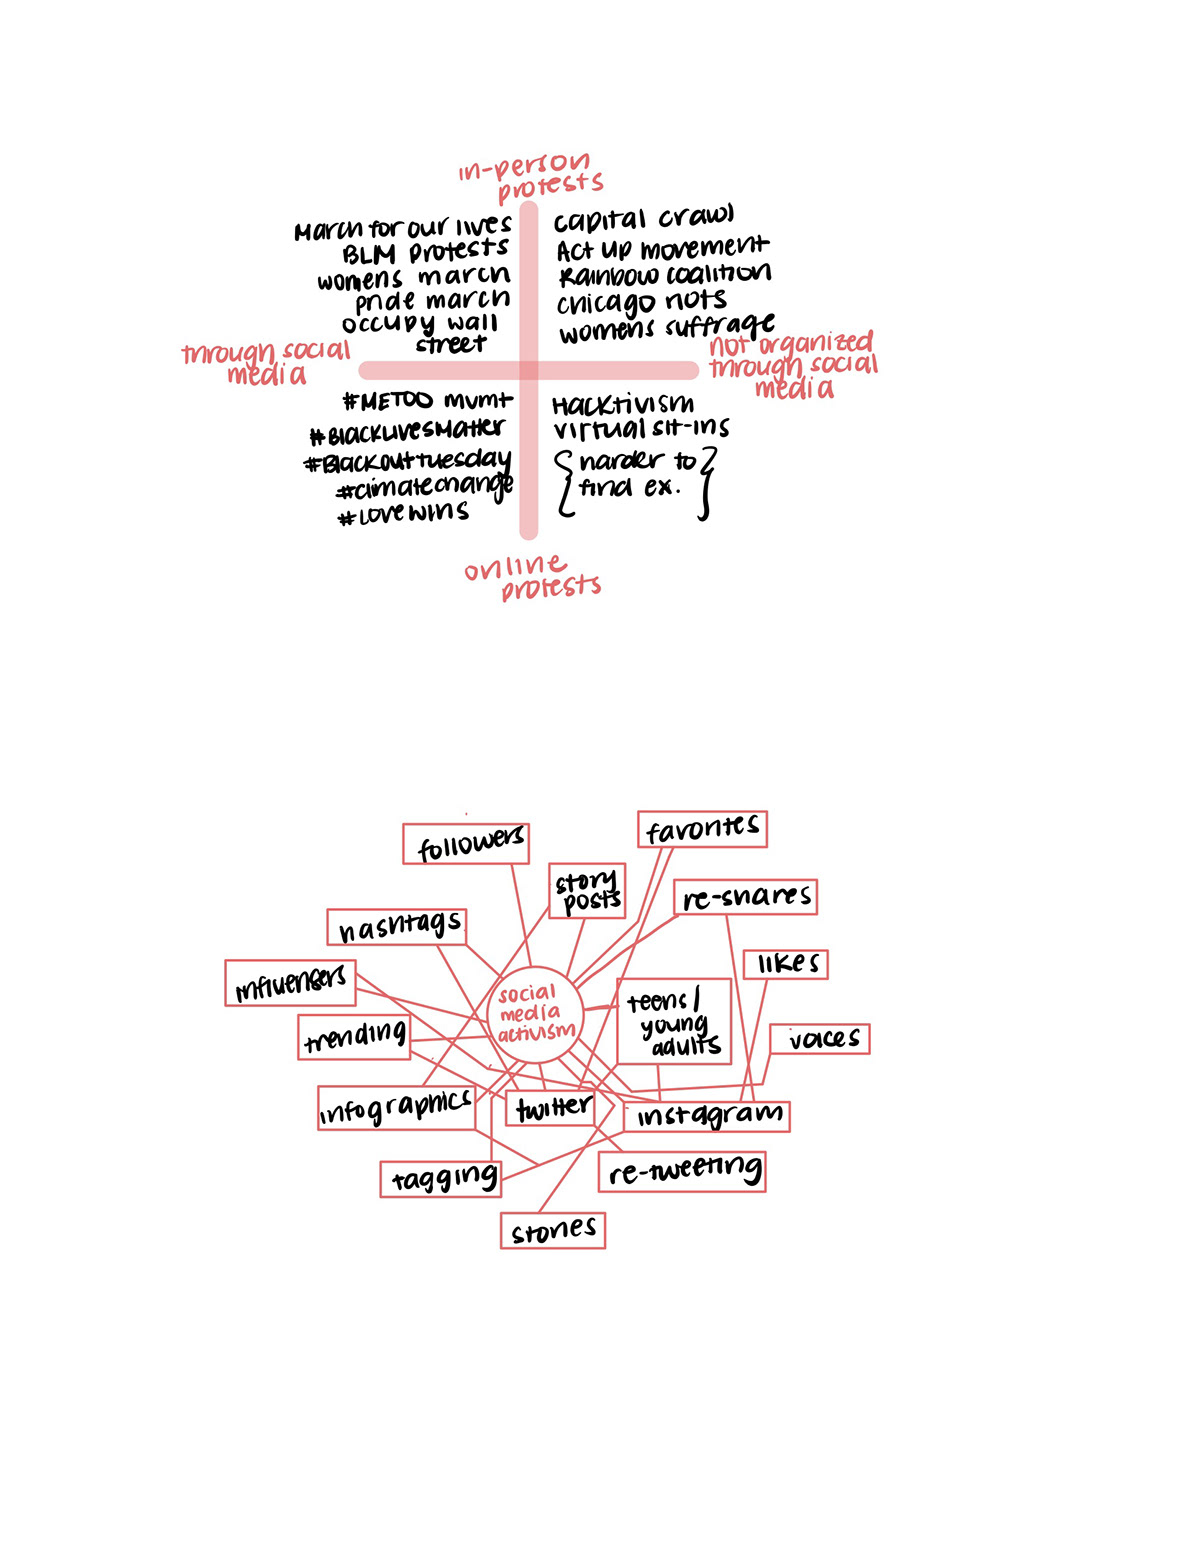 in-person
protests
March for our lives
BLM protests
womens march
pride march
occupy wall
street
capital crawl
Act up movement
Rainbow coalition
chicago riots
womens suffrage
through social
media
not organized
through social
media
#METOO mvmt
#BlackLivesMatter
#Blackouttuesday
#climatechange
#lovewins
Hacktivism
virtual sit-ins
{harder to}
find ex.
online
protests
followers
favorites
story
posts
re-shares
hashtags
likes
influensers
social
media
activism
teens/
young
adults
trending
voices
infographics
twitter
instagram
tagging
re-tweeting
stories